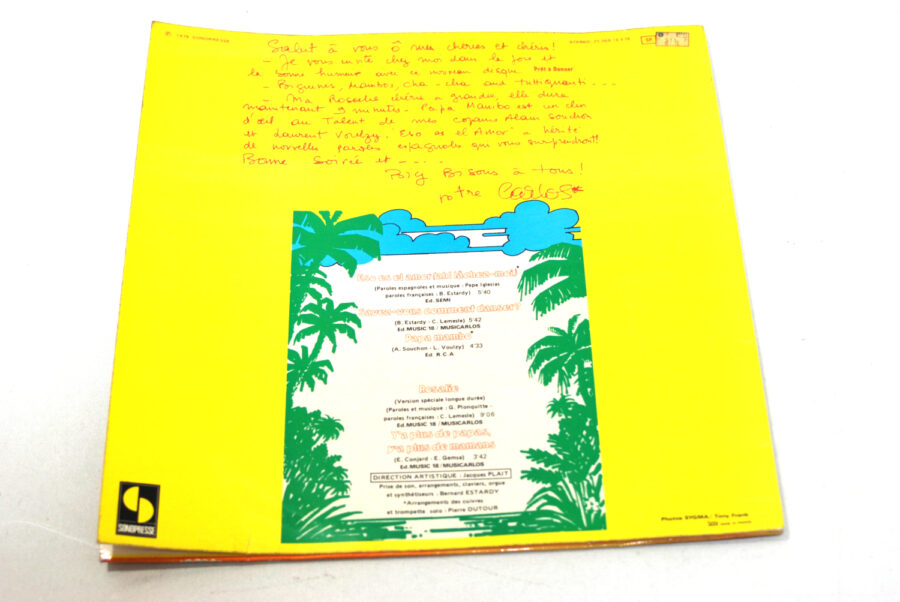 ℗ 1978 SONOPRESSE
STEREO
SP
Salut à vous ô mes chéries et chéris !
- Je vous invite chez moi dans la joie et
la bonne humeur avec ce nouveau disque Prêt à Danser
- Biguines, Mambos, Cha-cha and tuttiquanti...
- Ma Rosalie chérie a grandie, elle dure
maintenant 9 minutes - Papa Mambo est un clin
d'œil au Talent de mes copains Alain Souchon
et Laurent Voulzy. Eso es el Amor a hérité
de nouvelles paroles espagnoles qui vous surprendront!!
Bonne Soirée et ....
Big Bisous à tous !
votre Carlos*
Eso es el amor (aïe lâchez-moi)*
(Paroles espagnoles et musique : Pepe Iglesias
paroles françaises : B. Estardy) 5'40
Ed. SEMI
Savez-vous comment danser?
(B. Estardy - C. Lemesle) 5'42
Ed. MUSIC 18 / MUSICARLOS
Papa mambo*
(A. Souchon - L. Voulzy) 4'33
Ed. R.C.A
Rosalie
(Version spéciale longue durée)
(Paroles et musique : G. Plonquitte -
paroles françaises : C. Lemesle) 9'06
Ed. MUSIC 18 / MUSICARLOS
Y'a plus de papas,
y'a plus de mamans
(E. Conjard - E. Gemsa) 3'42
Ed. MUSIC 18 / MUSICARLOS
DIRECTION ARTISTIQUE : Jacques PLAIT
Prise de son, arrangements, claviers, orgue
et synthétiseurs : Bernard ESTARDY
*Arrangements des cuivres
et trompette solo : Pierre DUTOUR
SONOPRESSE
Photos SYGMA : Tony Frank
MADE IN FRANCE